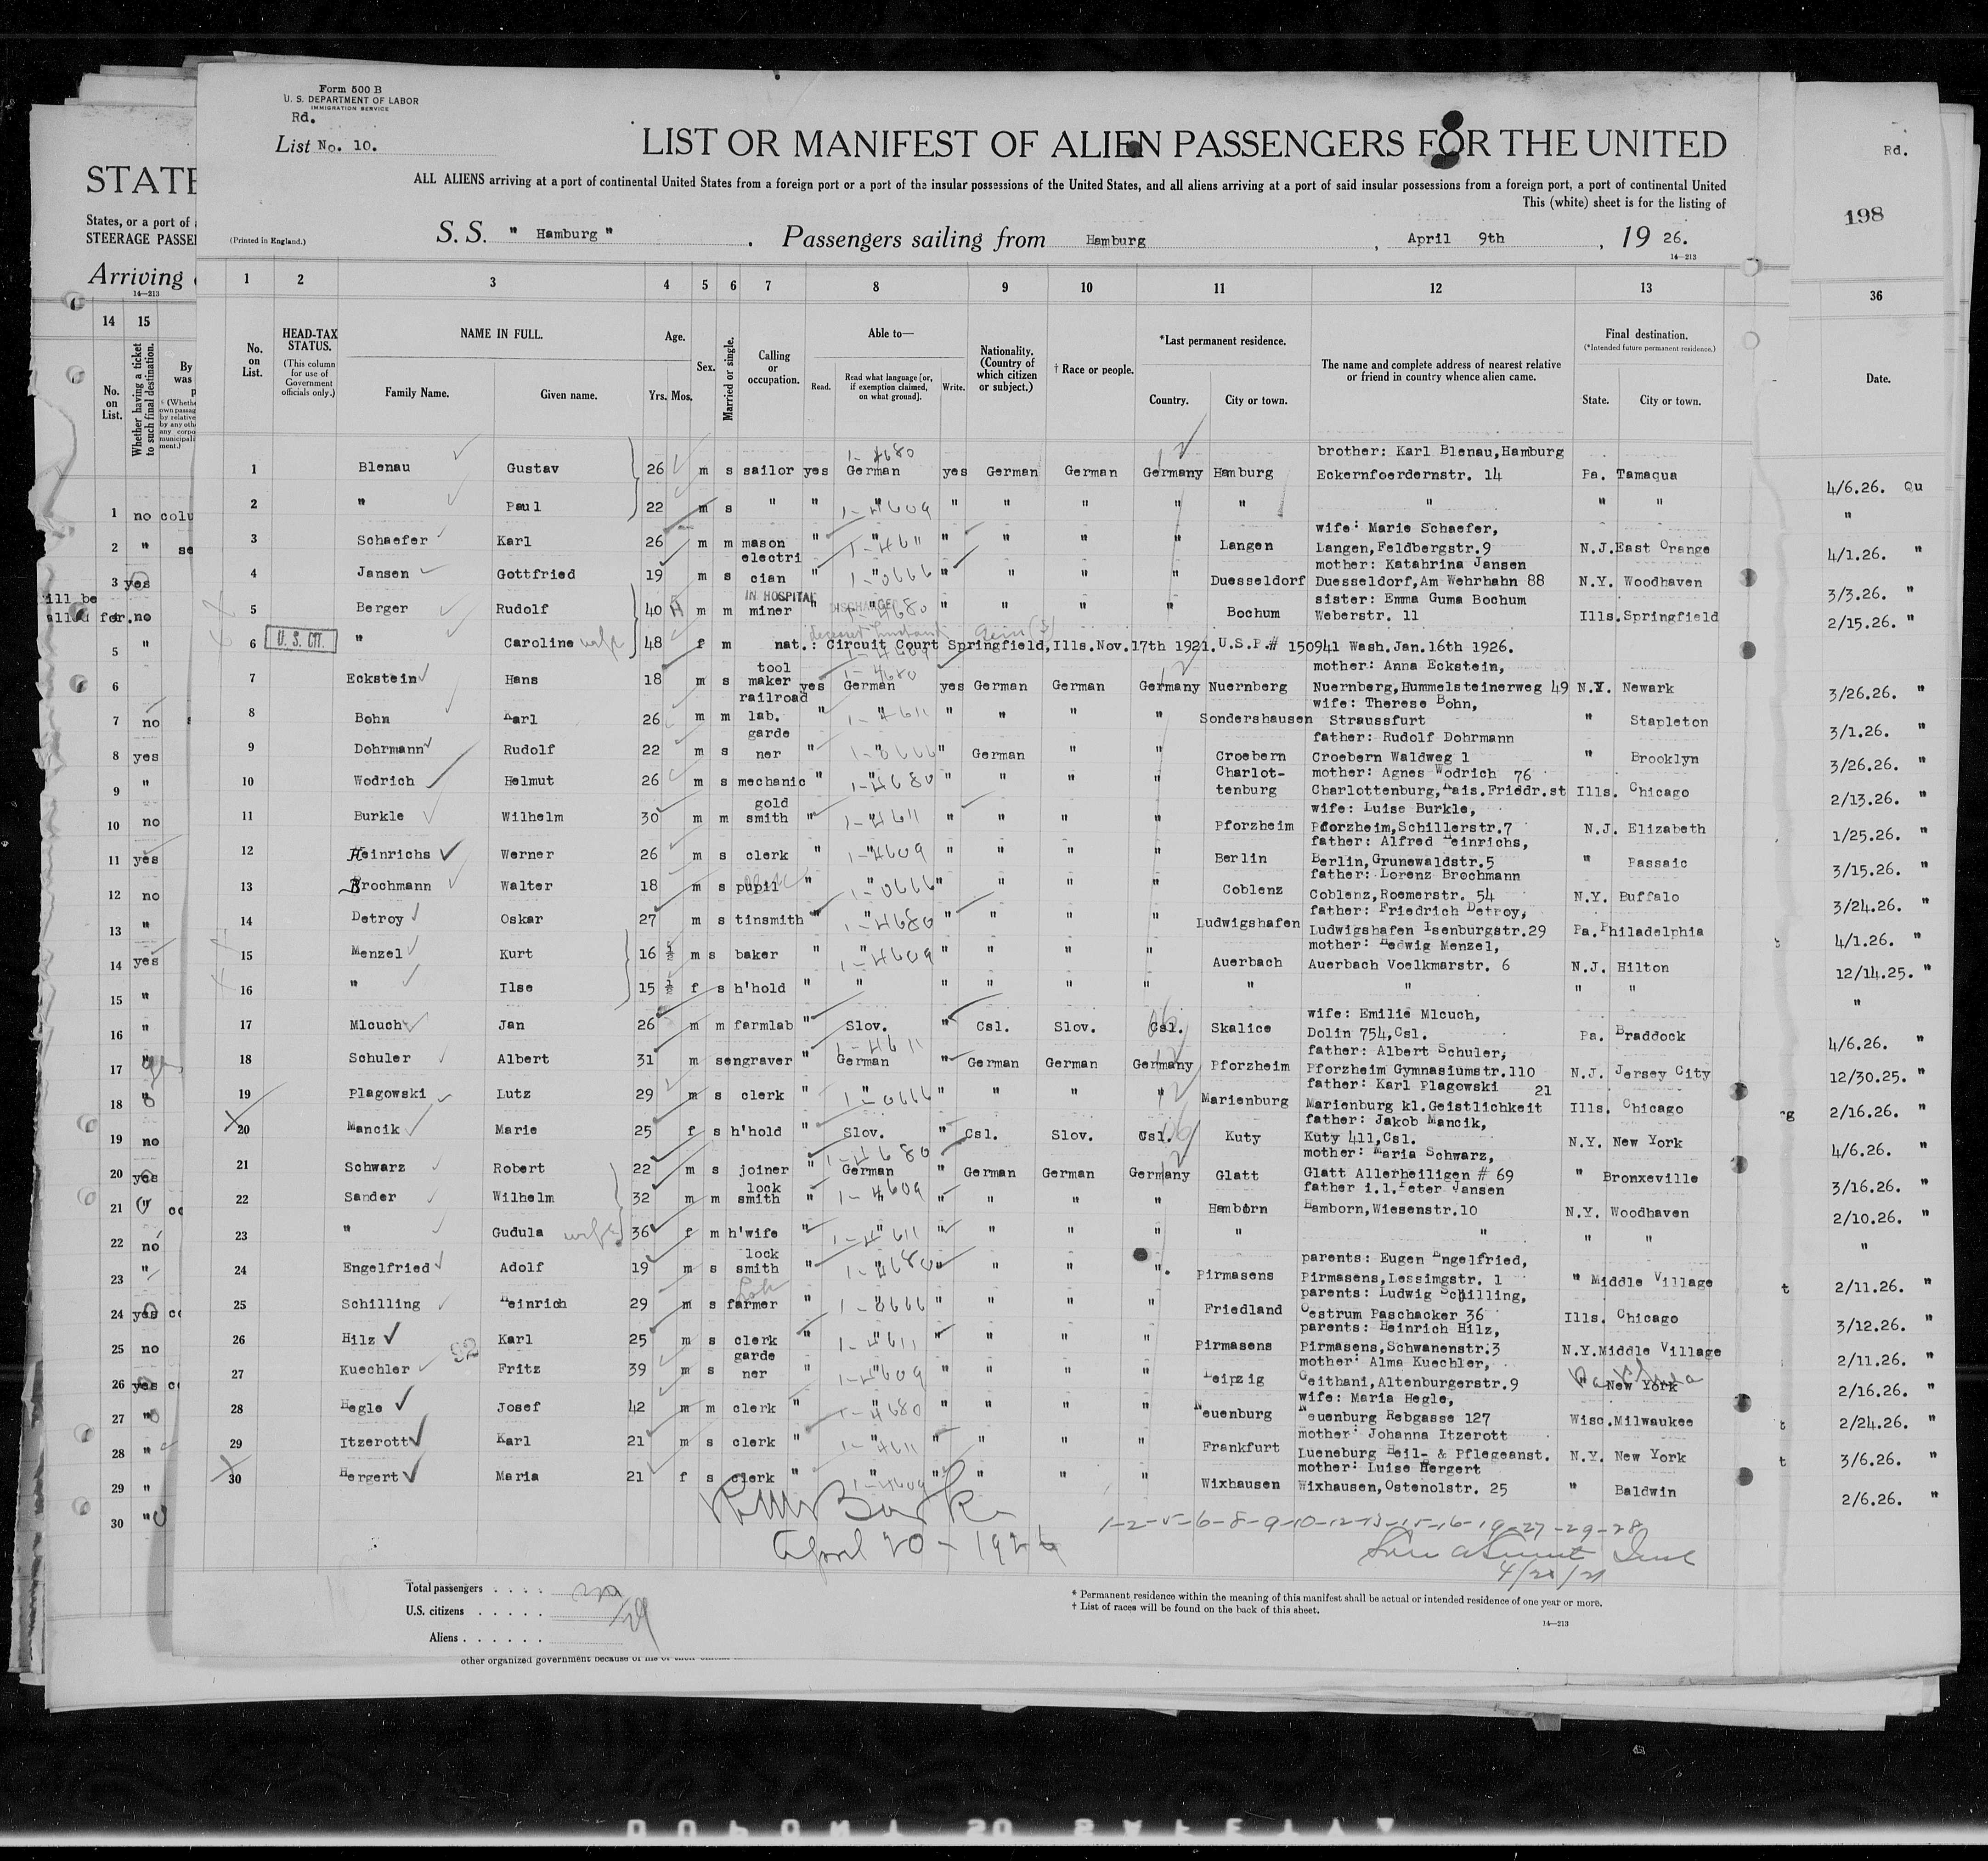 Form 500 B
U. S. DEPARTMENT OF LABOR
IMMIGRATION SERVICE
Rd.
List No. 10.
LIST OR MANIFEST OF ALIEN PASSENGERS FOR THE UNITED
STATE
Rd.
ALL ALIENS arriving at a port of continental United States from a foreign port or a port of the insular possessions of the United States, and all aliens arriving at a port of said insular possessions from a foreign port, a port of continental United
This (white) sheet is for the listing of
States, or a port of
STEERAGE PASSE
198
(Printed in England.)
S. S. " Hamburg " . Passengers sailing from Hamburg , April 9th , 19 26.
14—213
Arriving
14—213
1 2 3 4 5 6 7 8 9 10 11 12 13
14 15
36
No. on List.
HEAD-TAX STATUS.
(This column for use of Government officials only.)
NAME IN FULL.
Family Name.
Given name.
Age.
Yrs. Mos.
Sex.
Married or single.
Calling or occupation.
Able to—
Read.
Read what language [or, if exemption claimed, on what ground].
Write.
Nationality. (Country of which citizen or subject.)
† Race or people.
*Last permanent residence.
Country.
City or town.
The name and complete address of nearest relative or friend in country whence alien came.
Final destination.
(*Intended future permanent residence.)
State.
City or town.
No. on List.
Whether having a ticket to such final destination.
By
was
Date.
1-4680
brother: Karl Blenau,Hamburg
1 Blenau Gustav 26 m s sailor yes German yes German German Germany Hamburg Eckernfoerdernstr. 14 Pa. Tamaqua
2 " Paul 22 m s " " " " " " " " " " "
1-4609
wife: Marie Schaefer,
3 Schaefer Karl 26 m m mason " " " " " " Langen Langen,Feldbergstr.9 N.J.East Orange
1-4611
electri mother: Katahrina Jansen
4 Jansen Gottfried 19 m s cian " " " " " " Duesseldorf Duesseldorf,Am Wehrhahn 88 N.Y. Woodhaven
1-0666
IN HOSPITAL
DISCHARGED
sister: Emma Guma Bochum
5 Berger Rudolf 40 m m miner " " " " " " Bochum Weberstr. 11 Ills.Springfield
1-4680
6 U. S. CIT. " Caroline wife 48 f m nat.: Circuit Court Springfield,Ills.Nov.17th 1921.U.S.P.# 150941 Wash.Jan.16th 1926.
1-4609
tool mother: Anna Eckstein,
1-4680
7 Eckstein Hans 18 m s maker yes German yes German German Germany Nuernberg Nuernberg,Hummelsteinerweg 49 N.Y. Newark
railroad wife: Therese Bohn,
8 Bohn Karl 26 m m lab. " " " " " " Sondershausen Straussfurt " Stapleton
1-4611
garde father: Rudolf Dohrmann
9 Dohrmann Rudolf 22 m s ner " " " German " " Croebern Croebern Waldweg 1 " Brooklyn
1-0666
Charlot- mother: Agnes Wodrich 76
10 Wodrich Helmut 26 m s mechanic " " " " " " tenburg Charlottenburg,Kais.Friedr.st Ills. Chicago
1-4680
gold wife: Luise Burkle,
11 Burkle Wilhelm 30 m m smith " " " " " " Pforzheim Pforzheim,Schillerstr.7 N.J. Elizabeth
1-4611
father: Alfred Heinrichs,
12 Heinrichs Werner 26 m s clerk " " " " " " Berlin Berlin,Grunewaldstr.5 " Passaic
1-4609
father: Lorenz Brochmann
13 Brochmann Walter 18 m s pupil " " " " " " Coblenz Coblenz,Roemerstr. 54 N.Y. Buffalo
1-0666
father: Friedrich Detroy,
14 Detroy Oskar 27 m s tinsmith " " " " " " Ludwigshafen Ludwigshafen Isenburgstr.29 Pa.Philadelphia
1-4680
mother: Hedwig Menzel,
15 Menzel Kurt 16 ½ m s baker " " " " " " Auerbach Auerbach Voelkmarstr. 6 N.J. Hilton
1-4609
16 " Ilse 15 ½ f s h'hold " " " " " " " " " "
wife: Emilie Mlcuch,
17 Mlcuch Jan 26 m m farmlab " Slov. " Csl. Slov. Csl. Skalice Dolin 754,Csl. Pa. Braddock
1-4611
father: Albert Schuler,
18 Schuler Albert 31 m s engraver " German " German German Germany Pforzheim Pforzheim Gymnasiumstr.110 N.J. Jersey City
father: Karl Plagowski 21
19 Plagowski Lutz 29 m s clerk " " " " " " Marienburg Marienburg kl.Geistlichkeit Ills. Chicago
1-0666
father: Jakob Mancik,
20 Mancik Marie 25 f s h'hold " Slov. " Csl. Slov. Csl. Kuty Kuty 411,Csl. N.Y. New York
1-4680
mother: Maria Schwarz,
21 Schwarz Robert 22 m s joiner " German " German German Germany Glatt Glatt Allerheiligen # 69 " Bronxeville
lock father i.l.Peter Jansen
22 Sander Wilhelm 32 m m smith " " " " " " Hamborn Hamborn,Wiesenstr.10 N.Y. Woodhaven
1-4609
23 " Gudula wife 36 f m h'wife " " " " " " " " " "
1-4611
lock parents: Eugen Engelfried,
24 Engelfried Adolf 19 m s smith " " " " " " Pirmasens Pirmasens,Lessimgstr. 1 " Middle Village
1-4680
parents: Ludwig Schilling,
25 Schilling Heinrich 29 m s farmer " " " " " " Friedland Oestrum Paschacker 36 Ills. Chicago
1-0666
parents: Heinrich Hilz,
26 Hilz Karl 25 m s clerk " " " " " " Pirmasens Pirmasens,Schwanenstr.3 N.Y.Middle Village
1-4611
garde mother: Alma Kuechler,
27 Kuechler 92 Fritz 39 m s ner " " " " " " Leipzig Geithani,Altenburgerstr.9 " New York
1-4609
wife: Maria Hegle,
28 Hegle Josef 42 m m clerk " " " " " " Neuenburg Neuenburg Rebgasse 127 Wisc.Milwaukee
1-4680
mother: Johanna Itzerott
29 Itzerott Karl 21 m s clerk " " " " " " Frankfurt Lueneburg Heil- & Pflegeanst. N.Y. New York
1-4611
mother: Luise Hergert
30 Hergert Maria 21 f s clerk " " " " " " Wixhausen Wixhausen,Ostenolstr. 25 " Baldwin
1-4609
April 20 - 1926
1-2-5-6-8-9-10-12-13-15-16-19-27-29-28
Total passengers . . . .
U.S. citizens . . . . .
Aliens . . . . . .
* Permanent residence within the meaning of this manifest shall be actual or intended residence of one year or more.
† List of races will be found on the back of this sheet.
14—213
1 no colu
2 " se
3 yes
ill be
alled for. no
5 "
6
7 no
8 yes
9 "
10 no
11 yes
12 no
13 "
14 yes
15 "
16 "
17 "
18 "
19 no
20 yes
21 "
22 no
23 "
24 yes
25 no
26 yes
27 "
28 "
29 "
30 "
4/6.26. Qu
"
4/1.26. "
3/3.26. "
2/15.26. "
3/26.26. "
3/1.26. "
3/26.26. "
2/13.26. "
1/25.26. "
3/15.26. "
3/24.26. "
4/1.26. "
12/14.25. "
"
4/6.26. "
12/30.25. "
2/16.26. "
4/6.26. "
3/16.26. "
2/10.26. "
"
2/11.26. "
3/12.26. "
2/11.26. "
2/16.26. "
2/24.26. "
3/6.26. "
2/6.26. "